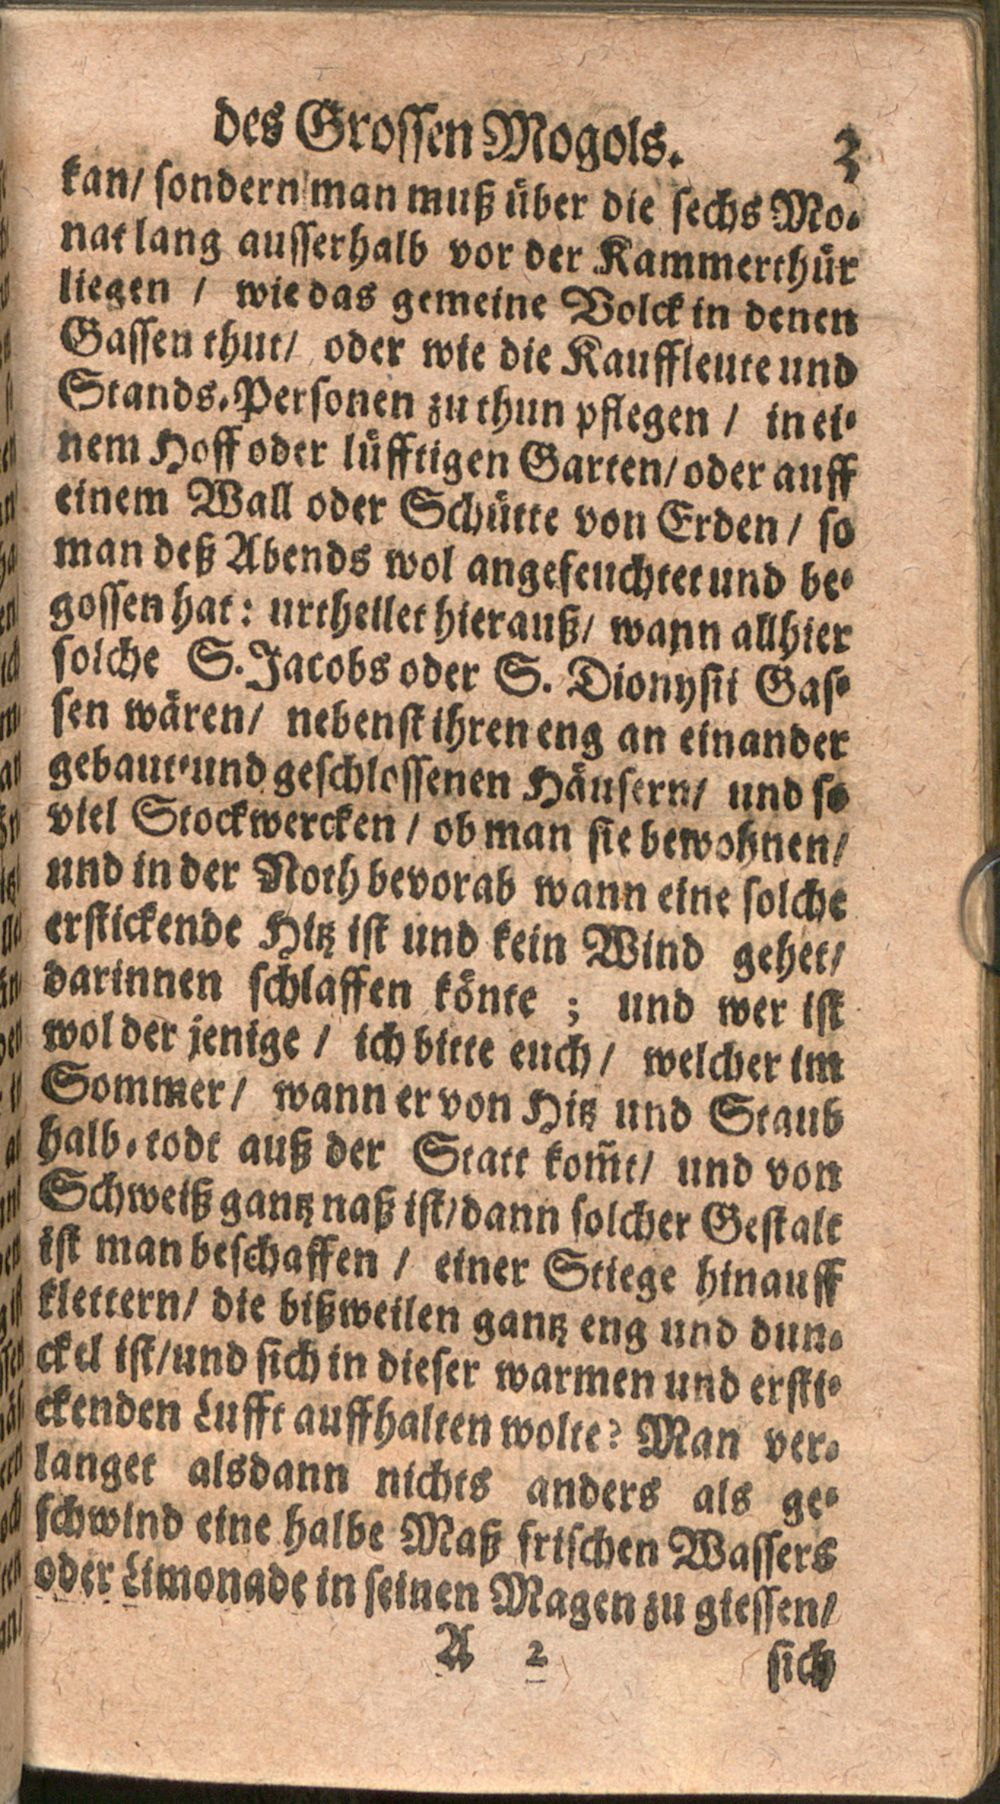 des Grossen Mogols. 3
kan/ sondern man muß über die sechs Mo-
nat lang ausserhalb vor der Kammerthür
liegen / wie das gemeine Volck in denen
Gassen thut/ oder wie die Kauffleute und
Stands-Personen zu thun pflegen / in ei-
nem Hoff oder lüfftigen Garten/ oder auff
einem Wall oder Schütte von Erden / so
man deß Abends wol angefeuchtet und be-
gossen hat: urtheilet hierauß/ wann allhier
solche S. Jacobs oder S. Dionysii Gas-
sen wären/ nebenst ihren eng an einander
gebaut-und geschlossenen Häusern/ und so
viel Stockwercken / ob man sie bewohnen/
und in der Noth bevorab wann eine solche
erstickende Hitz ist und kein Wind gehet/
darinnen schlaffen könte ; und wer ist
wol der jenige / ich bitte euch / welcher im
Sommer/ wann er von Hitz und Staub
halb-todt auß der Statt kom̃t/ und von
Schweiß gantz naß ist/ dann solcher Gestalt
ist man beschaffen / einer Stiege hinauff
klettern/ die bißweilen gantz eng und dun-
ckel ist/ und sich in dieser warmen und ersti-
ckenden Lufft auffhalten wolte? Man ver-
langet alsdann nichts anders als ge-
schwind eine halbe Maß frischen Wassers
oder Limonade in seinen Magen zu giessen/
A 2 sich